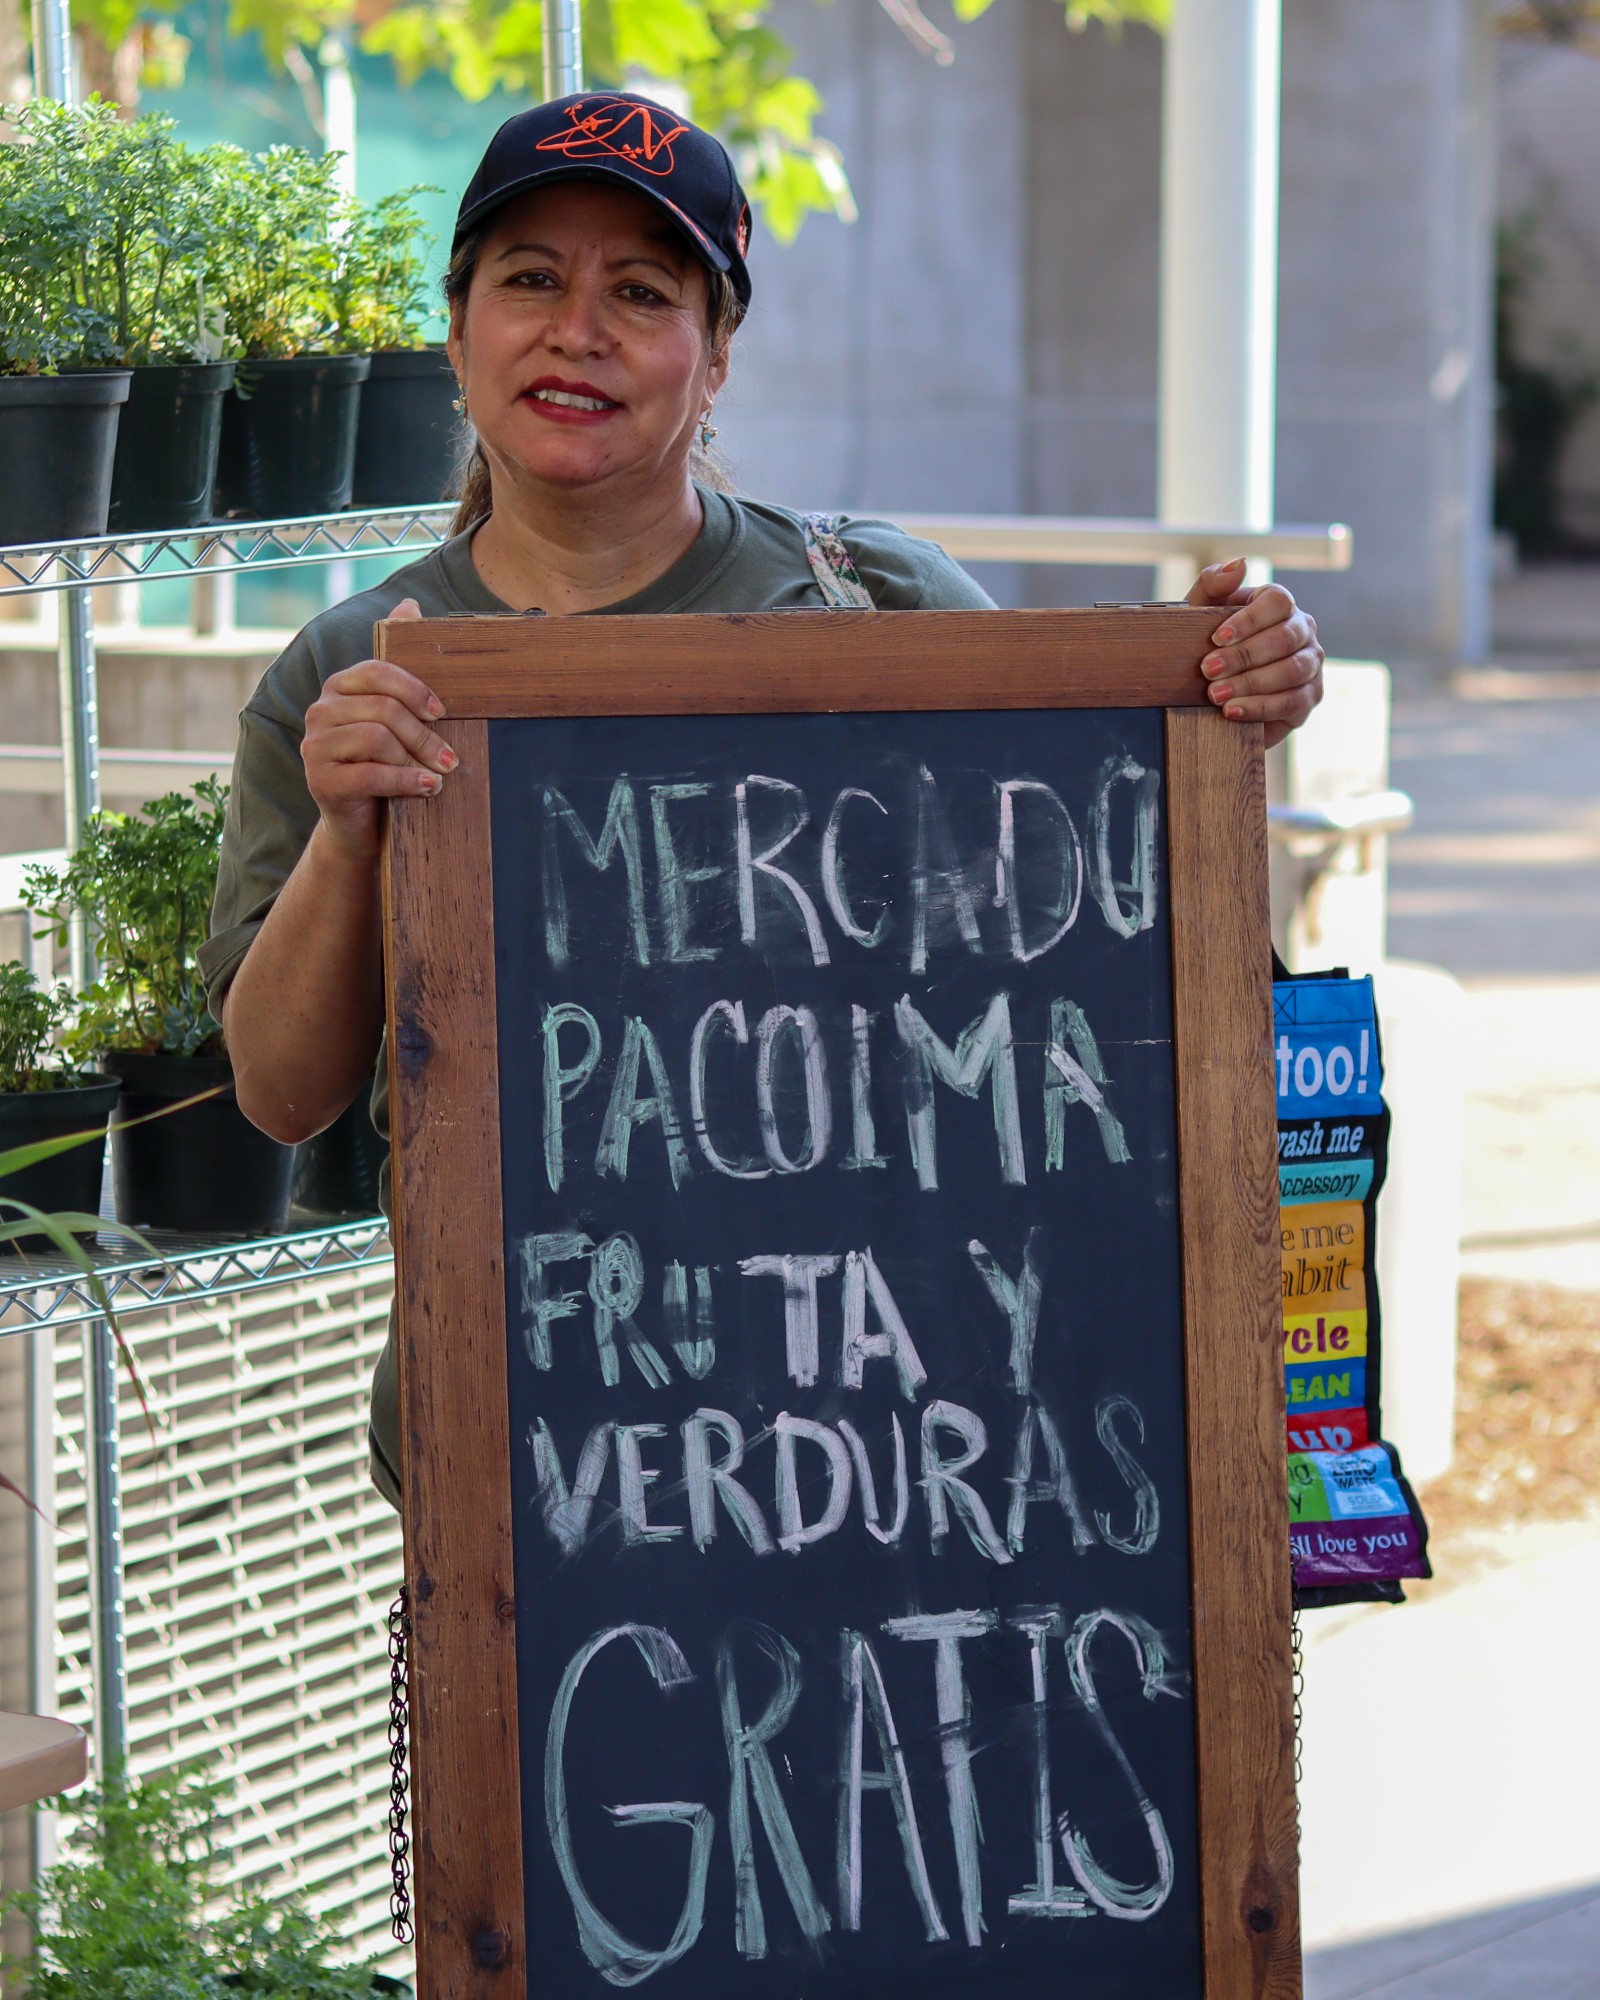 MERCADO
PACOIMA
FRUTA Y
VERDURAS
GRATIS
too!
wash me
accessory
me
abit
cycle
LEAN
up
ZERO
WASTE
SOLID
still love you